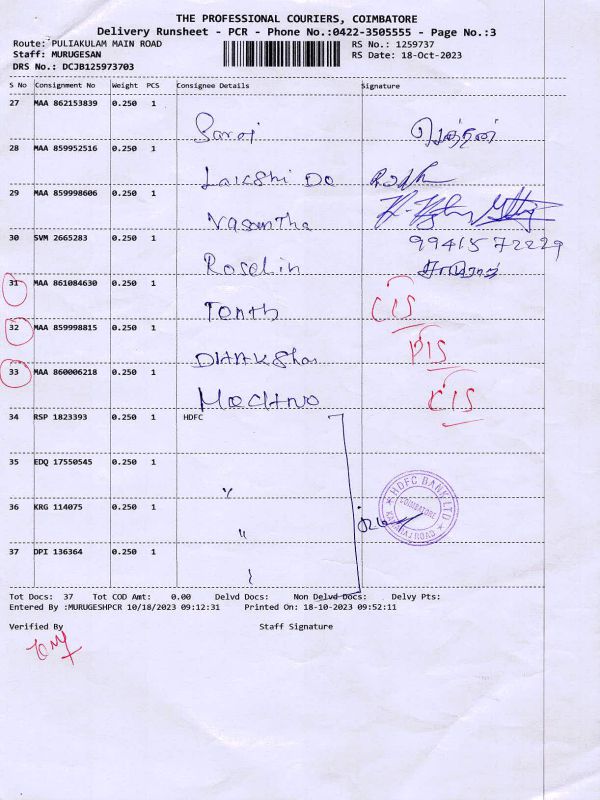 THE PROFESSIONAL COURIERS, COIMBATORE
Delivery Runsheet - PCR - Phone No.:0422-3505555 - Page No.:3
Route: PULIAKULAM MAIN ROAD RS No.: 1259737
Staff: MURUGESAN RS Date: 18-Oct-2023
DRS No.: DCJB125973703
S No Consignment No Weight PCS Consignee Details Signature
27 MAA 862153839 0.250 1
Saroj
28 MAA 859952516 0.250 1
29 MAA 859998606 0.250 1
Vasantha
30 SVM 2665283 0.250 1 9941572229
Roselin
31 MAA 861084630 0.250 1
CIS
32 MAA 859998815 0.250 1
DIS
33 MAA 860006218 0.250 1
CIS
34 RSP 1823393 0.250 1 HDFC
35 EDQ 17550545 0.250 1
"
36 KRG 114075 0.250 1
"
HDFC BANK LTD
COIMBATORE
37 DPI 136364 0.250 1
Tot Docs: 37 Tot COD Amt: 0.00 Delvd Docs: Non Delvd Docs: Delvy Pts:
Entered By :MURUGESHPCR 10/18/2023 09:12:31 Printed On: 18-10-2023 09:52:11
Verified By Staff Signature